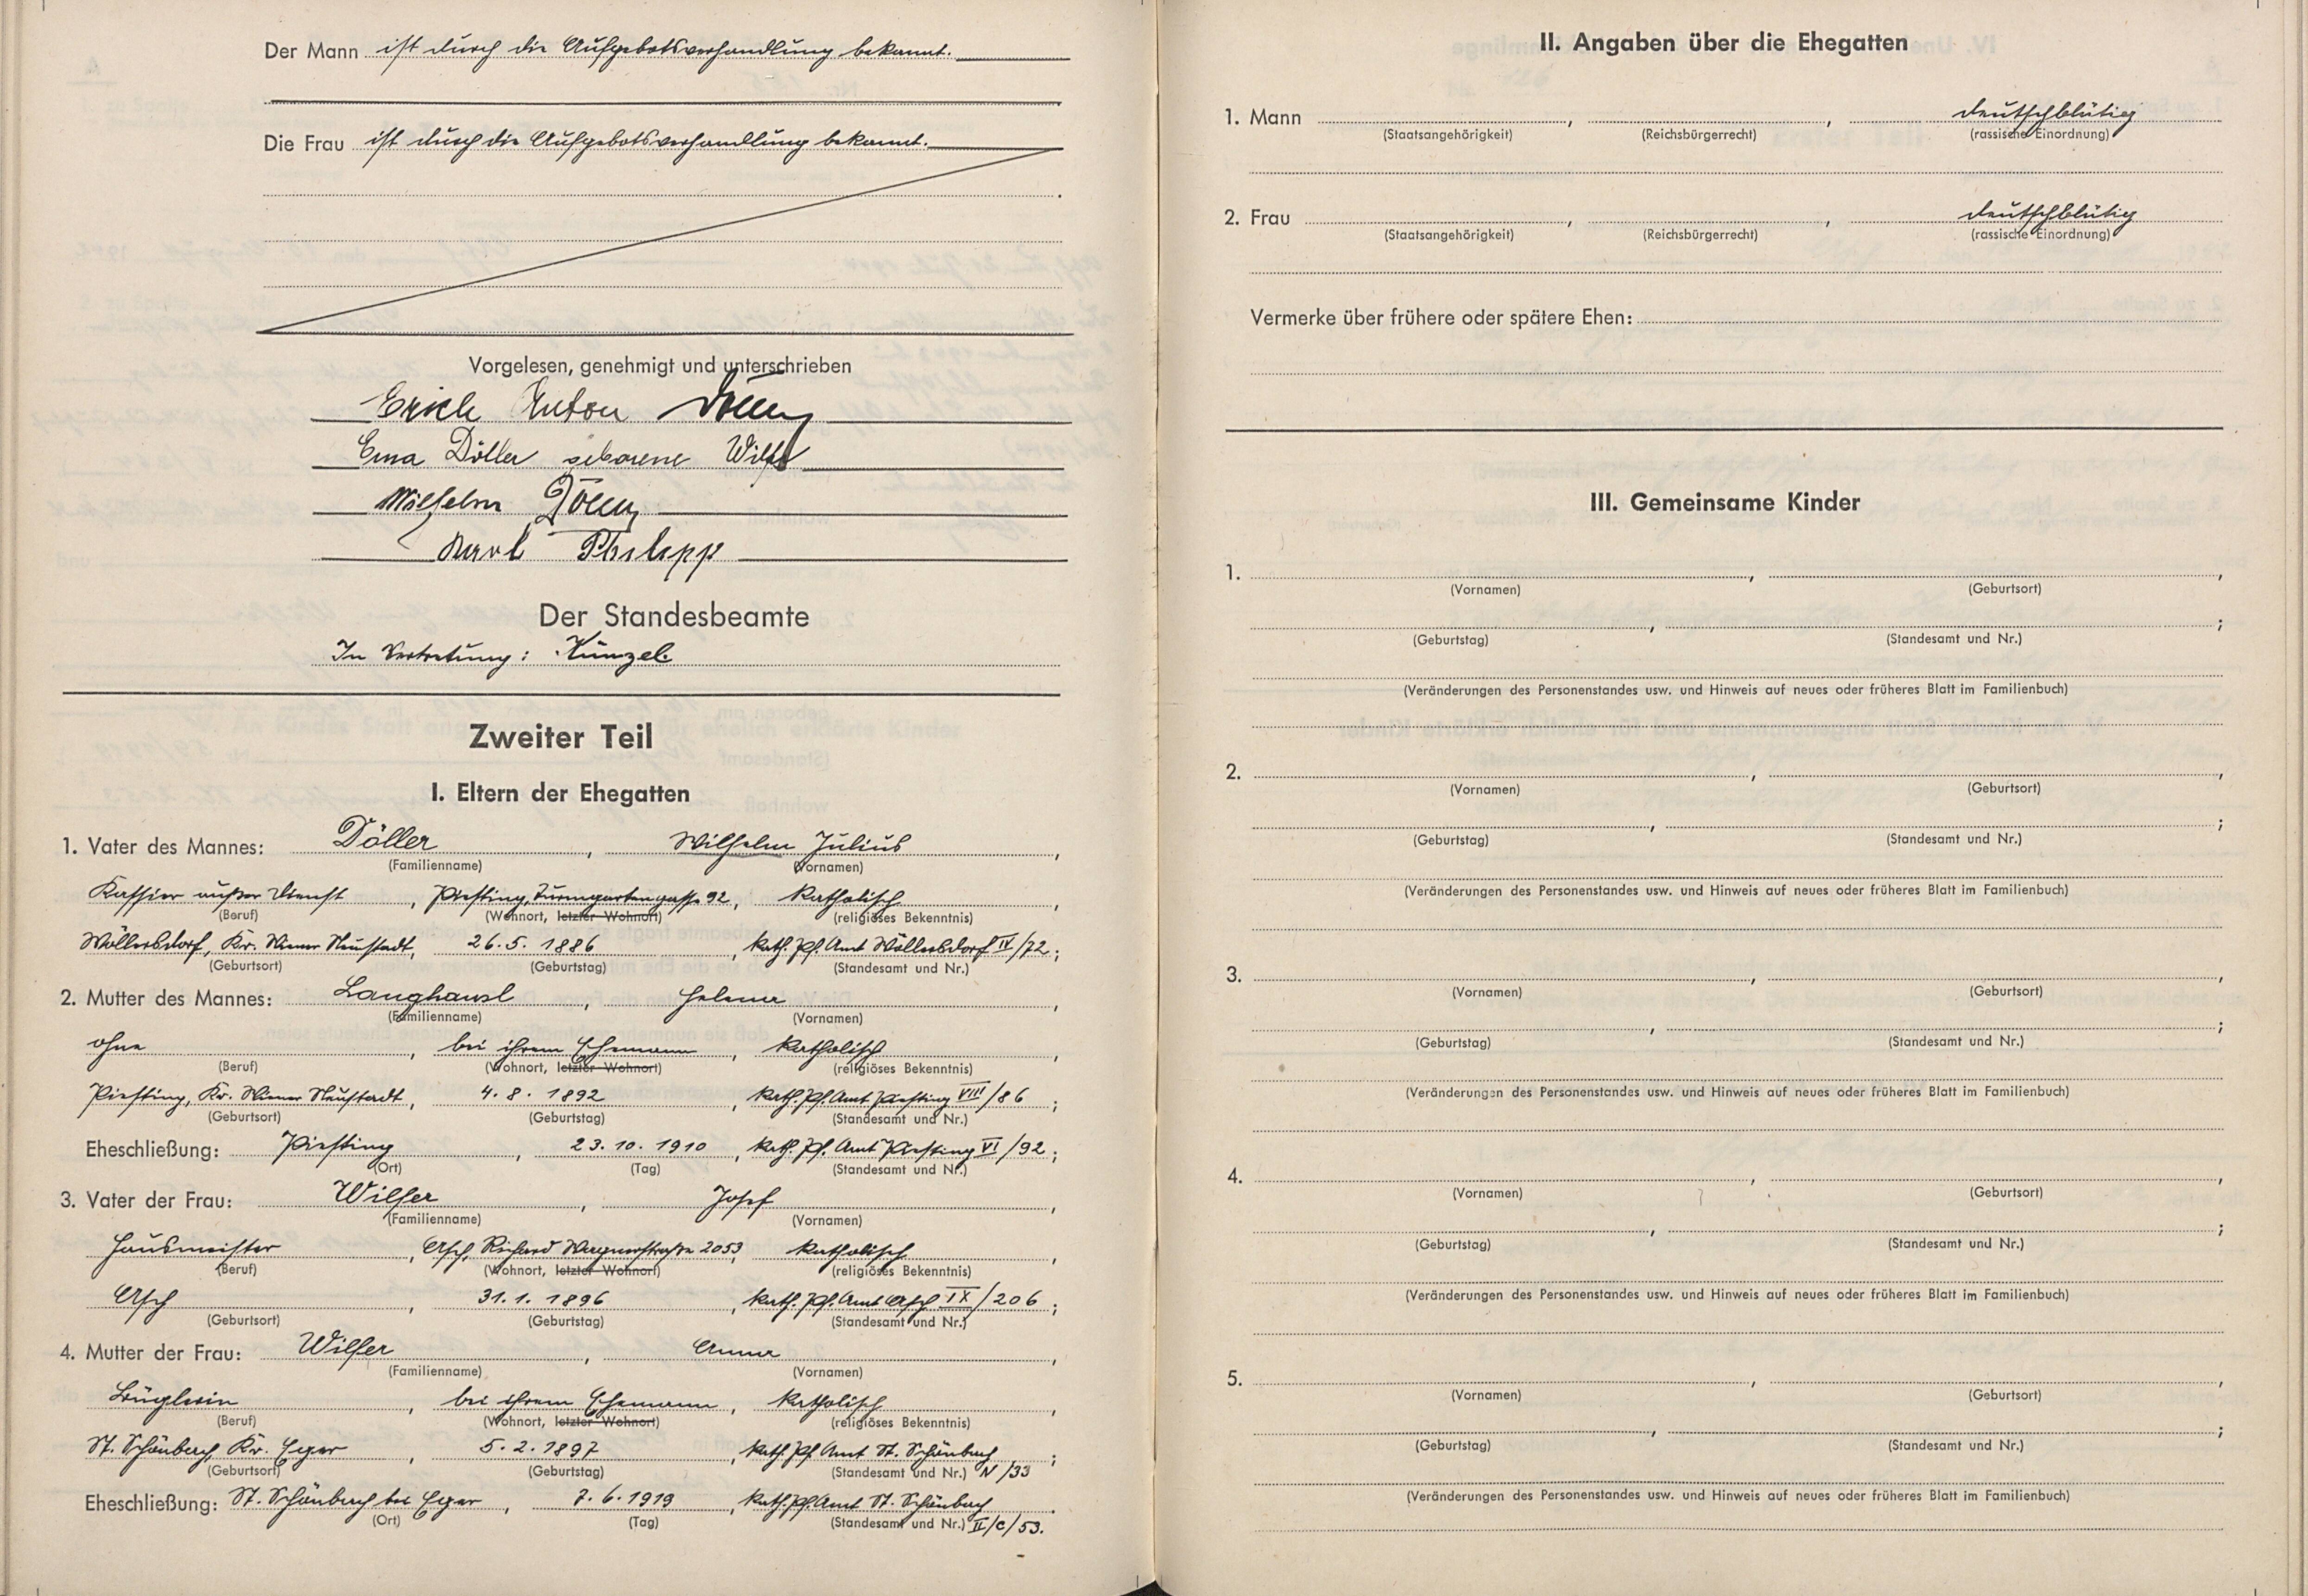 Der Mann ist durch die Aufgebotsverhandlung bekannt.
Die Frau ist durch die Aufgebotsverhandlung bekannt.
Vorgelesen, genehmigt und unterschrieben
Erich Anton Döller
Erna Döller geborene Wilfer
Wilhelm Döller
Karl Philipp
Der Standesbeamte
In Vertretung: Künzel.
Zweiter Teil
I. Eltern der Ehegatten
1. Vater des Mannes: Döller, Wilhelm Julius,
(Familienname) (Vornamen)
Kassier außer Dienst, Piesting, Turmgartengasse 92, katholisch,
(Beruf) (Wohnort, letzter Wohnort) (religiöses Bekenntnis)
Wöllersdorf, Kr. Wiener Neustadt, 26.5.1886, kath. Pf. Amt Wöllersdorf IV/72;
(Geburtsort) (Geburtstag) (Standesamt und Nr.)
2. Mutter des Mannes: Langhansl, Helene,
(Familienname) (Vornamen)
ohne, bei ihrem Ehemann, katholisch,
(Beruf) (Wohnort, letzter Wohnort) (religiöses Bekenntnis)
Piesting, Kr. Wiener Neustadt, 4.8.1892, kath. Pf. Amt Piesting VIII/86;
(Geburtsort) (Geburtstag) (Standesamt und Nr.)
Eheschließung: Piesting, 23.10.1910, kath. Pf. Amt Piesting VI/92;
(Ort) (Tag) (Standesamt und Nr.)
3. Vater der Frau: Wilfer, Josef,
(Familienname) (Vornamen)
Hausmeister, Asch, Richard Wagnerstraße 2053, katholisch,
(Beruf) (Wohnort, letzter Wohnort) (religiöses Bekenntnis)
Asch, 31.1.1896, kath. Pf. Amt Asch IX/206;
(Geburtsort) (Geburtstag) (Standesamt und Nr.)
4. Mutter der Frau: Wilfer, Anna,
(Familienname) (Vornamen)
Büglerin, bei ihrem Ehemann, katholisch,
(Beruf) (Wohnort, letzter Wohnort) (religiöses Bekenntnis)
St. Schönbach, Kr. Eger, 5.2.1897, kath. Pf. Amt St. Schönbach;
(Geburtsort) (Geburtstag) (Standesamt und Nr.) N/33
Eheschließung: St. Schönbach bei Eger, 7.6.1919, kath. Pf. Amt St. Schönbach
(Ort) (Tag) (Standesamt und Nr.) II/C/53.
II. Angaben über die Ehegatten
1. Mann , , deutschblütig
(Staatsangehörigkeit) (Reichsbürgerrecht) (rassische Einordnung)
2. Frau , , deutschblütig
(Staatsangehörigkeit) (Reichsbürgerrecht) (rassische Einordnung)
Vermerke über frühere oder spätere Ehen:
III. Gemeinsame Kinder
1. , ,
(Vornamen) (Geburtsort)
, ;
(Geburtstag) (Standesamt und Nr.)
(Veränderungen des Personenstandes usw. und Hinweis auf neues oder früheres Blatt im Familienbuch)
2. , ,
(Vornamen) (Geburtsort)
, ;
(Geburtstag) (Standesamt und Nr.)
(Veränderungen des Personenstandes usw. und Hinweis auf neues oder früheres Blatt im Familienbuch)
3. , ,
(Vornamen) (Geburtsort)
, ;
(Geburtstag) (Standesamt und Nr.)
(Veränderungen des Personenstandes usw. und Hinweis auf neues oder früheres Blatt im Familienbuch)
4. , ,
(Vornamen) (Geburtsort)
, ;
(Geburtstag) (Standesamt und Nr.)
(Veränderungen des Personenstandes usw. und Hinweis auf neues oder früheres Blatt im Familienbuch)
5. , ,
(Vornamen) (Geburtsort)
, ;
(Geburtstag) (Standesamt und Nr.)
(Veränderungen des Personenstandes usw. und Hinweis auf neues oder früheres Blatt im Familienbuch)